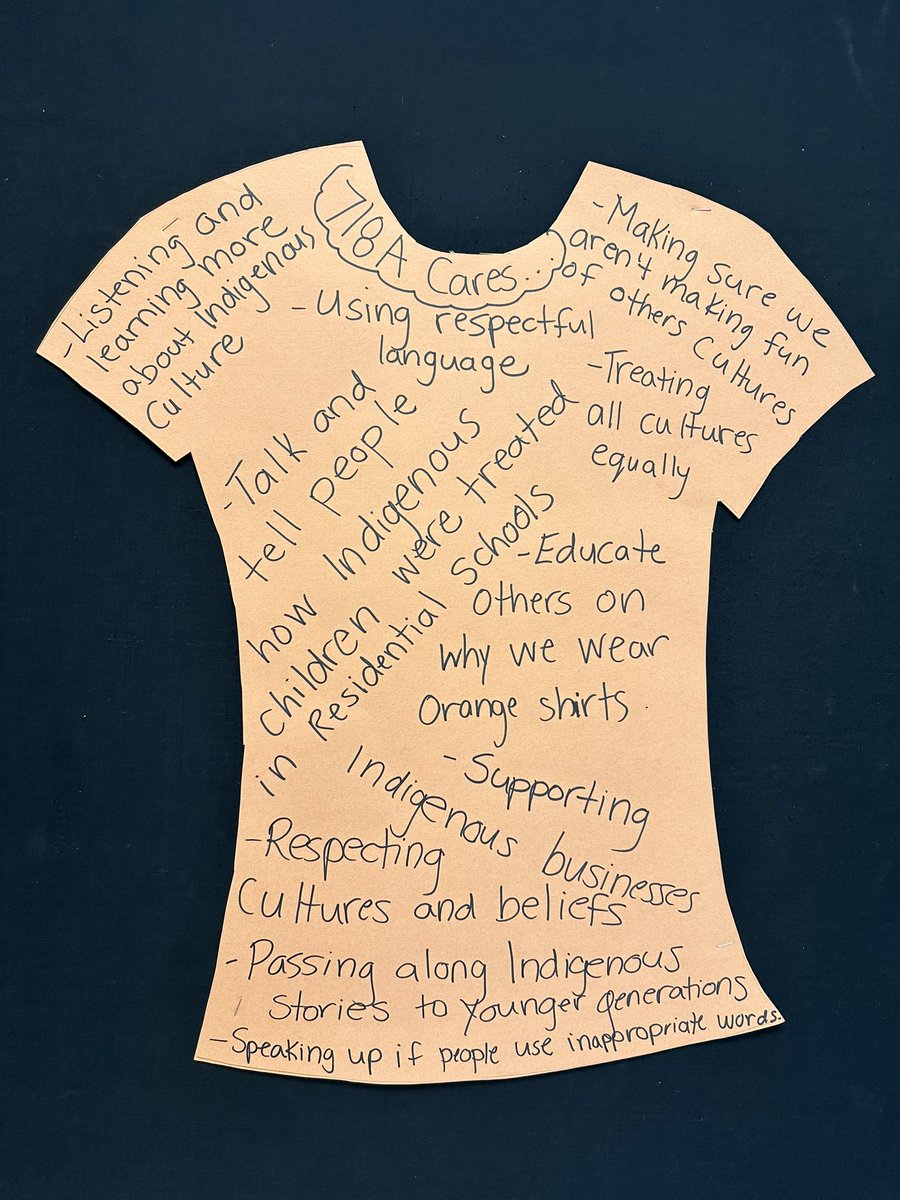 718A Cares...
- Listening and
learning more
about Indigenous
Culture
- Using respectful
language
- Making sure we
aren't making fun
of others cultures
- Treating
all cultures
equally
- Talk and
tell people
how Indigenous
children were treated
in Residential Schools
- Educate
Others on
why we wear
Orange shirts
- Supporting
Indigenous businesses
- Respecting
Cultures and beliefs
- Passing along Indigenous
Stories to younger generations
- Speaking up if people use inappropriate words.